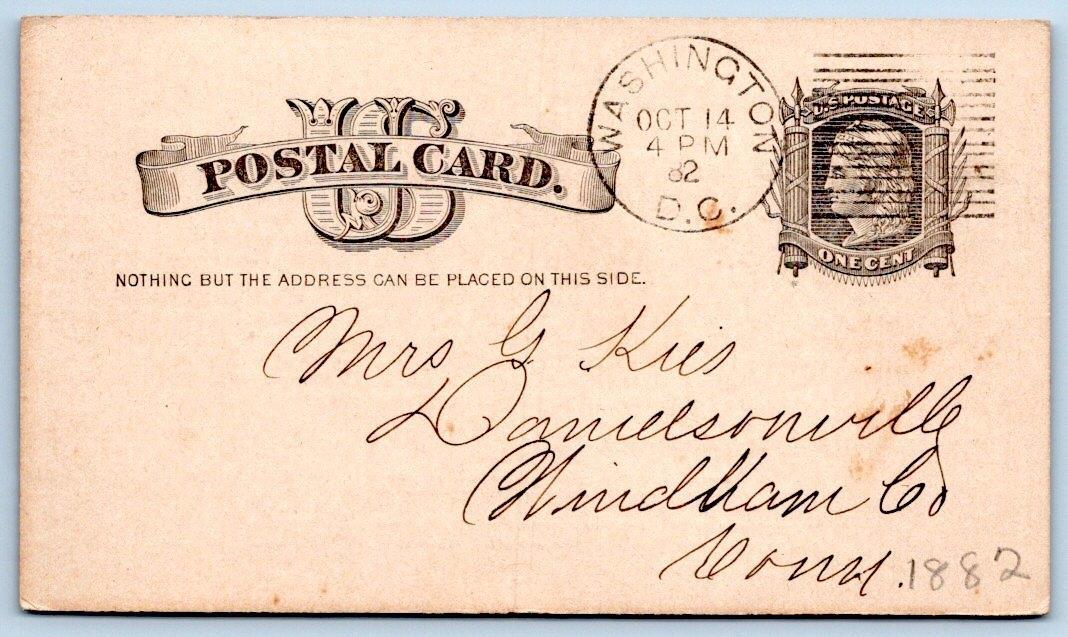 US
POSTAL CARD.
WASHINGTON
OCT 14
4 PM
82
D.C.
U.S. POSTAGE
ONE CENT
NOTHING BUT THE ADDRESS CAN BE PLACED ON THIS SIDE.
Mrs G Kies
Danielsonville
Windham Co
Conn.
1882